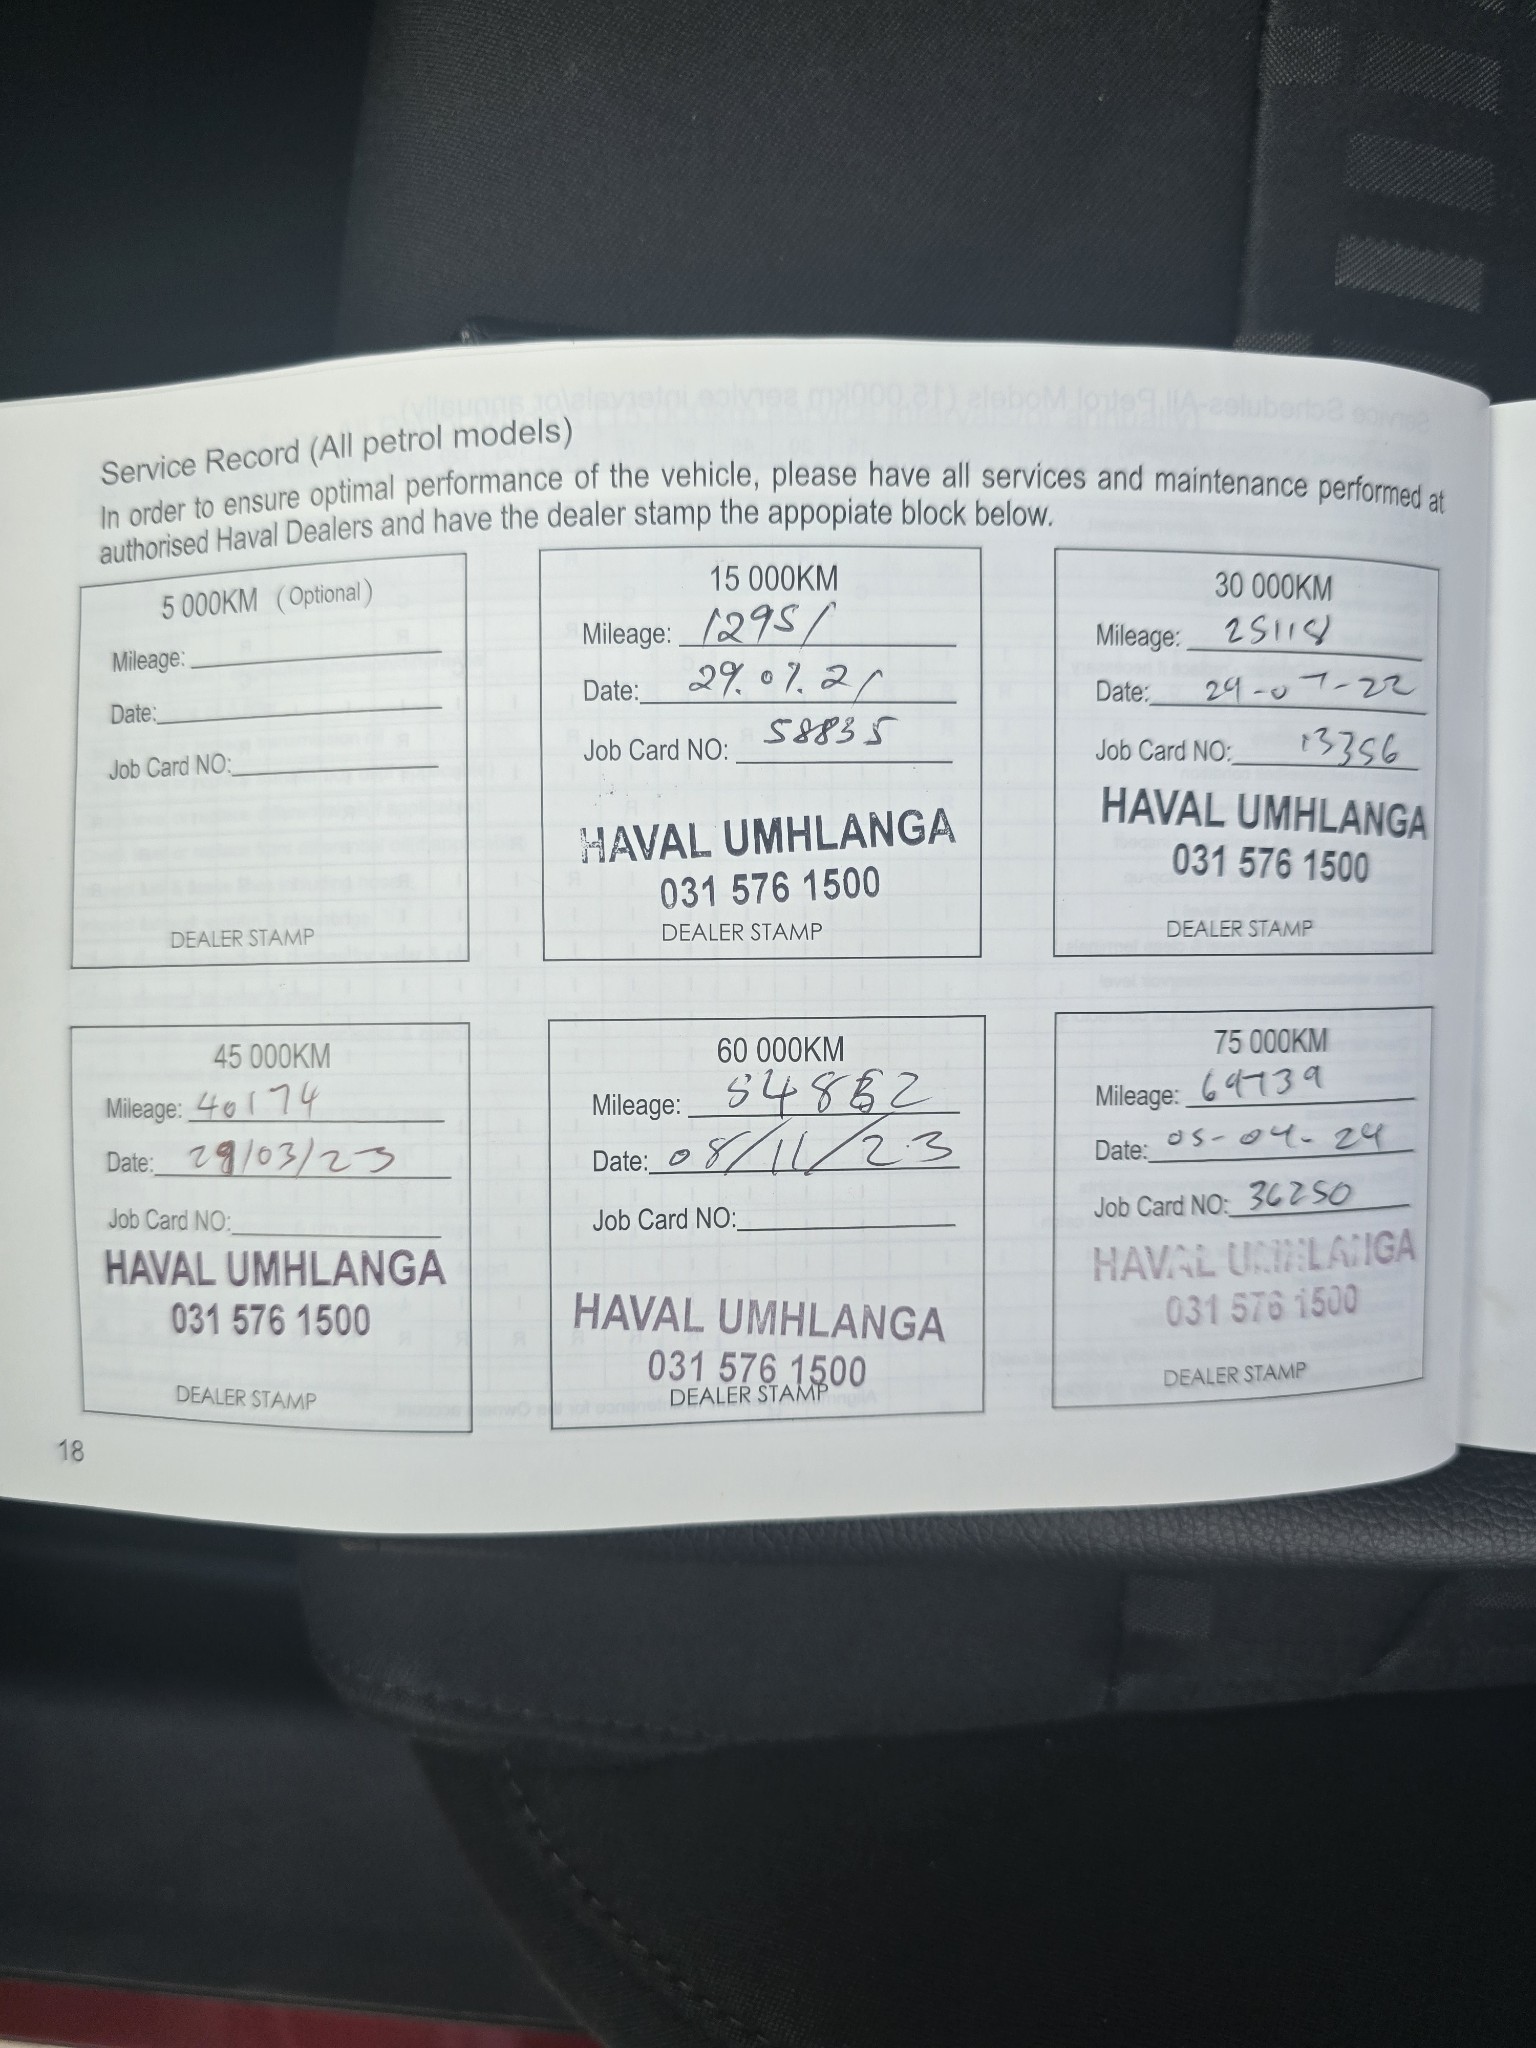 Service Record (All petrol models)
In order to ensure optimal performance of the vehicle, please have all services and maintenance performed at
authorised Haval Dealers and have the dealer stamp the appopiate block below.
5 000KM (Optional)
Mileage:
Date:
Job Card NO:
DEALER STAMP
15 000KM
Mileage: 12951
Date: 29.07.21
Job Card NO: 58835
HAVAL UMHLANGA
031 576 1500
DEALER STAMP
30 000KM
Mileage: 25118
Date: 29-07-22
Job Card NO: 13356
HAVAL UMHLANGA
031 576 1500
DEALER STAMP
45 000KM
Mileage: 40174
Date: 29/03/23
Job Card NO:
HAVAL UMHLANGA
031 576 1500
DEALER STAMP
60 000KM
Mileage:
Date: 08/11/23
Job Card NO:
HAVAL UMHLANGA
031 576 1500
DEALER STAMP
75 000KM
Mileage: 69739
Date: 05-04-24
Job Card NO: 36250
HAVAL UMHLANGA
031 576 1500
DEALER STAMP
18